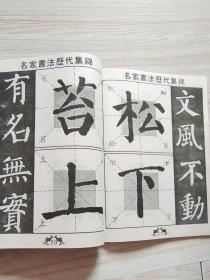 名家書法歷代集錦
文風不動
松
下
名家書法歷代集錦
苔
上
有名無實